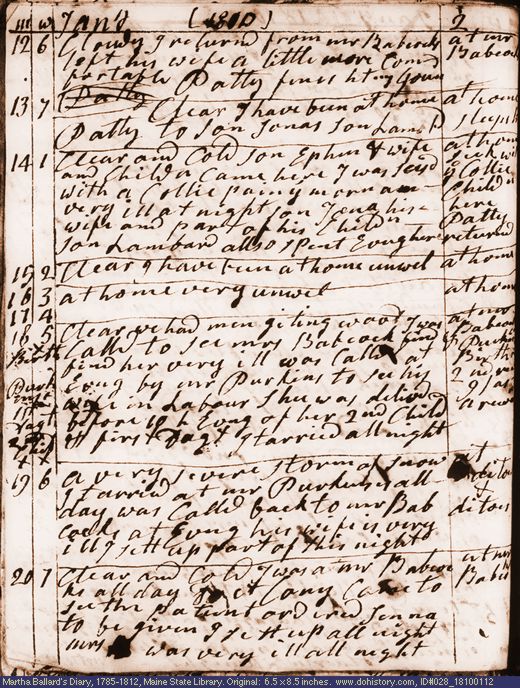 m w Jan'r (1810) 2
12 6 Clowdy I returnd from mr Babcocks at mr
left his wife a little more Com Babcock
portable Patty fines ht my Goun
(Patty
13 7 Clear I have been at home at home
Patty to Son Jonas Son Lamb'd
14 1 Clear and Cold Son Ephm & wife at home
and Child n Came here I was Seisd Sick with
with a Collic pain y morn am y Collic
very ill at night Son Jona his Childn
wife and part of his Childn here
Son Lambard allso Spent Evng here Patty returned
15 2 Clear I have been at home unwel at home
16 3 at home very unwel at home
17 4
18 5 Clear we had men giting wood I was at mr
Calld to See mrs Babcock find Babcock
find her very ill was Calld at & Purkins
Evng by mr Purkins to See his Birth
wife in Labour Shee was delivd 2nd
before 10 h Evng of her 2nd Child
& first Dagt I tarried all night
19 6 a very Severe Storm of Snow at
I tarried at mr Purkinss all ditos
day was Calld back to mr Bab ditos
Cocks at Evng his wife is very
ill I sett up part of this night
20 7 Clear and Cold I was a mr Babcoc at mr
ks all day Dr Cony Came to Babcoc
See the patient ordered Senna
to be given I sett up all night
mrs was very ill all night
Martha Ballard's Diary, 1785-1812, Maine State Library. Original: 6.5 x 8.5 inches. www.dohistory.com, ID#028_18100112